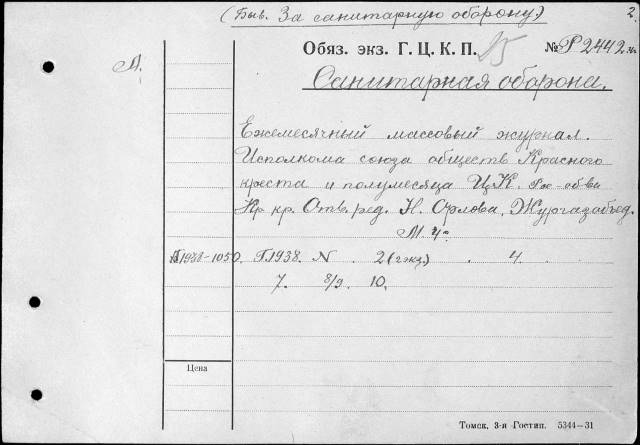 (Быв. За санитарную оборону) 2.
Обяз. экз. Г. Ц. К. П. 15 № Р 2442
М.
Санитарная оборона.
Ежемесячный массовый журнал.
Исполкома союза обществ Красного
креста и полумесяца ЦК Рк об-ва
Кр кр. Отв. ред. Н. Орлова, Жургазобъед.
М.
1938-1050. Г. 1938. N 2 (2 экз.) . 4.
7. 8/9. 10.
Цена
Томск. 3-я Гостип. 5344—31